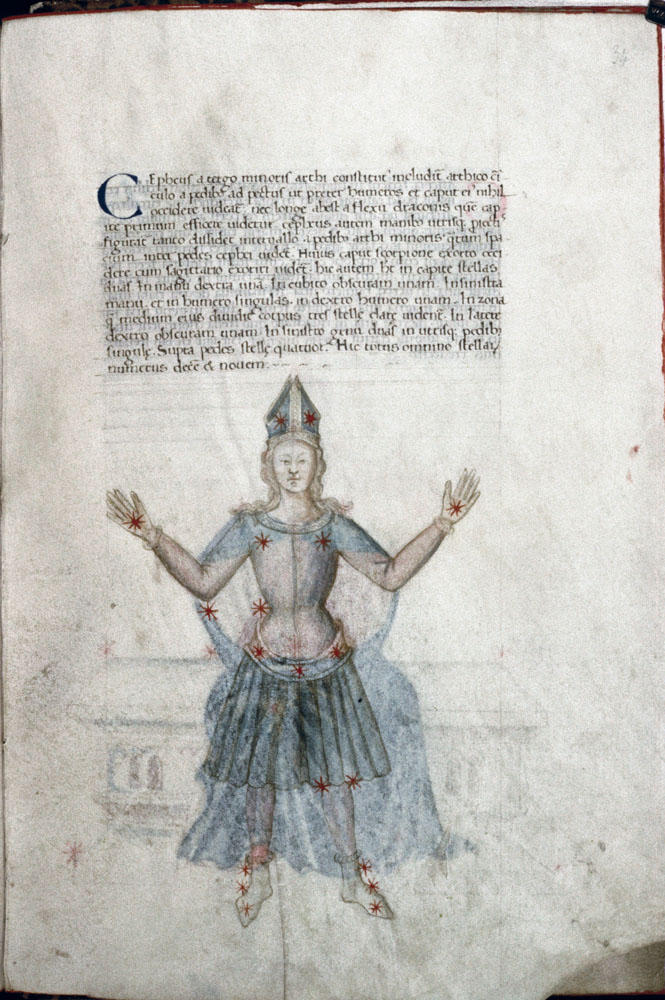 34
CEpheus a tergo minoris arthi constitut' includit' arthico cir
culo a pedib; ad pectus ut preter humeros et caput ei' nihil
occidere uideat'. nec longe abest a flexu draconis que cap
ite primum efficere uidetur. cepheus autem manib; utrisq; 
figurat' tanto dissidet interuallo a pedib; arthi minoris quam spa
cium inter pedes cephei uidet'. Huius caput scorpione exorto occi
dere cum sagittario exoriri uidet'. hic autem ht in capite stellas
duas In manu dextra una. In cubito obscuram unam. In sinistra
manu, et in humero singulas. in dextro humero unam. In zona
q medium eius diuidit corpus tres stelle clare uident'. In latere
dextro obscuram unam. In sinistro genu duas in utrisq; pedib;
singule. Supra pedes stelle quatuor. Hic totus omnino stellaru
numerus dece & nouem.